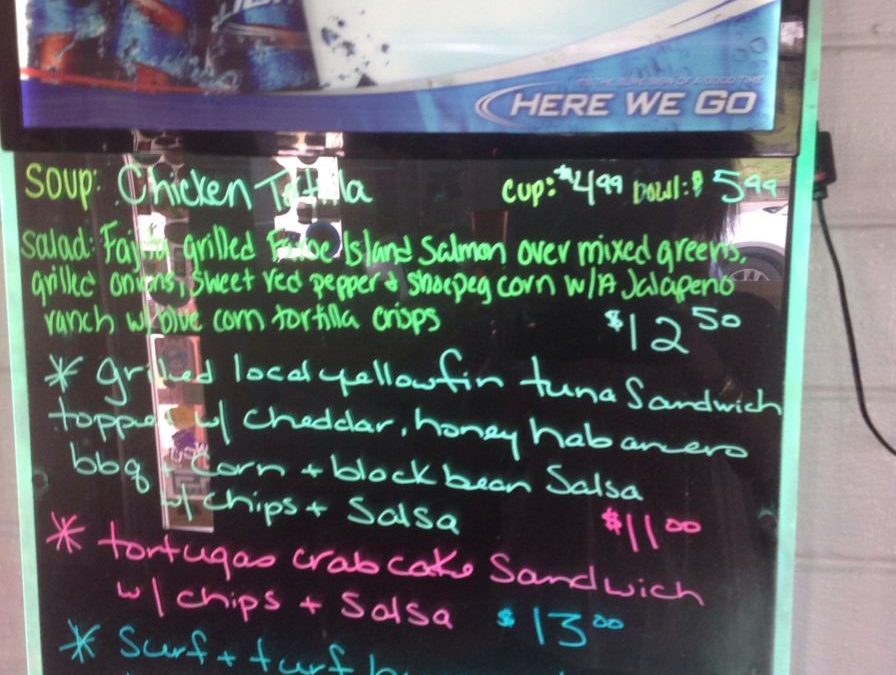 HERE WE GO
Soup: Chicken Tortilla cup: $4.99 bowl: $5.99
Salad: Fajita grilled Faroe Island Salmon over mixed greens,
grilled onions, sweet red pepper & shoepeg corn w/A Jalapeno
ranch w/ blue corn tortilla crisps $12.50
* grilled local yellowfin tuna Sandwich
topped w/ cheddar, honey habanero
bbq + corn + black bean Salsa
w/ chips + Salsa $11.00
* tortugas crab cake Sandwich
w/ chips + Salsa $13.00
* Surf + turf